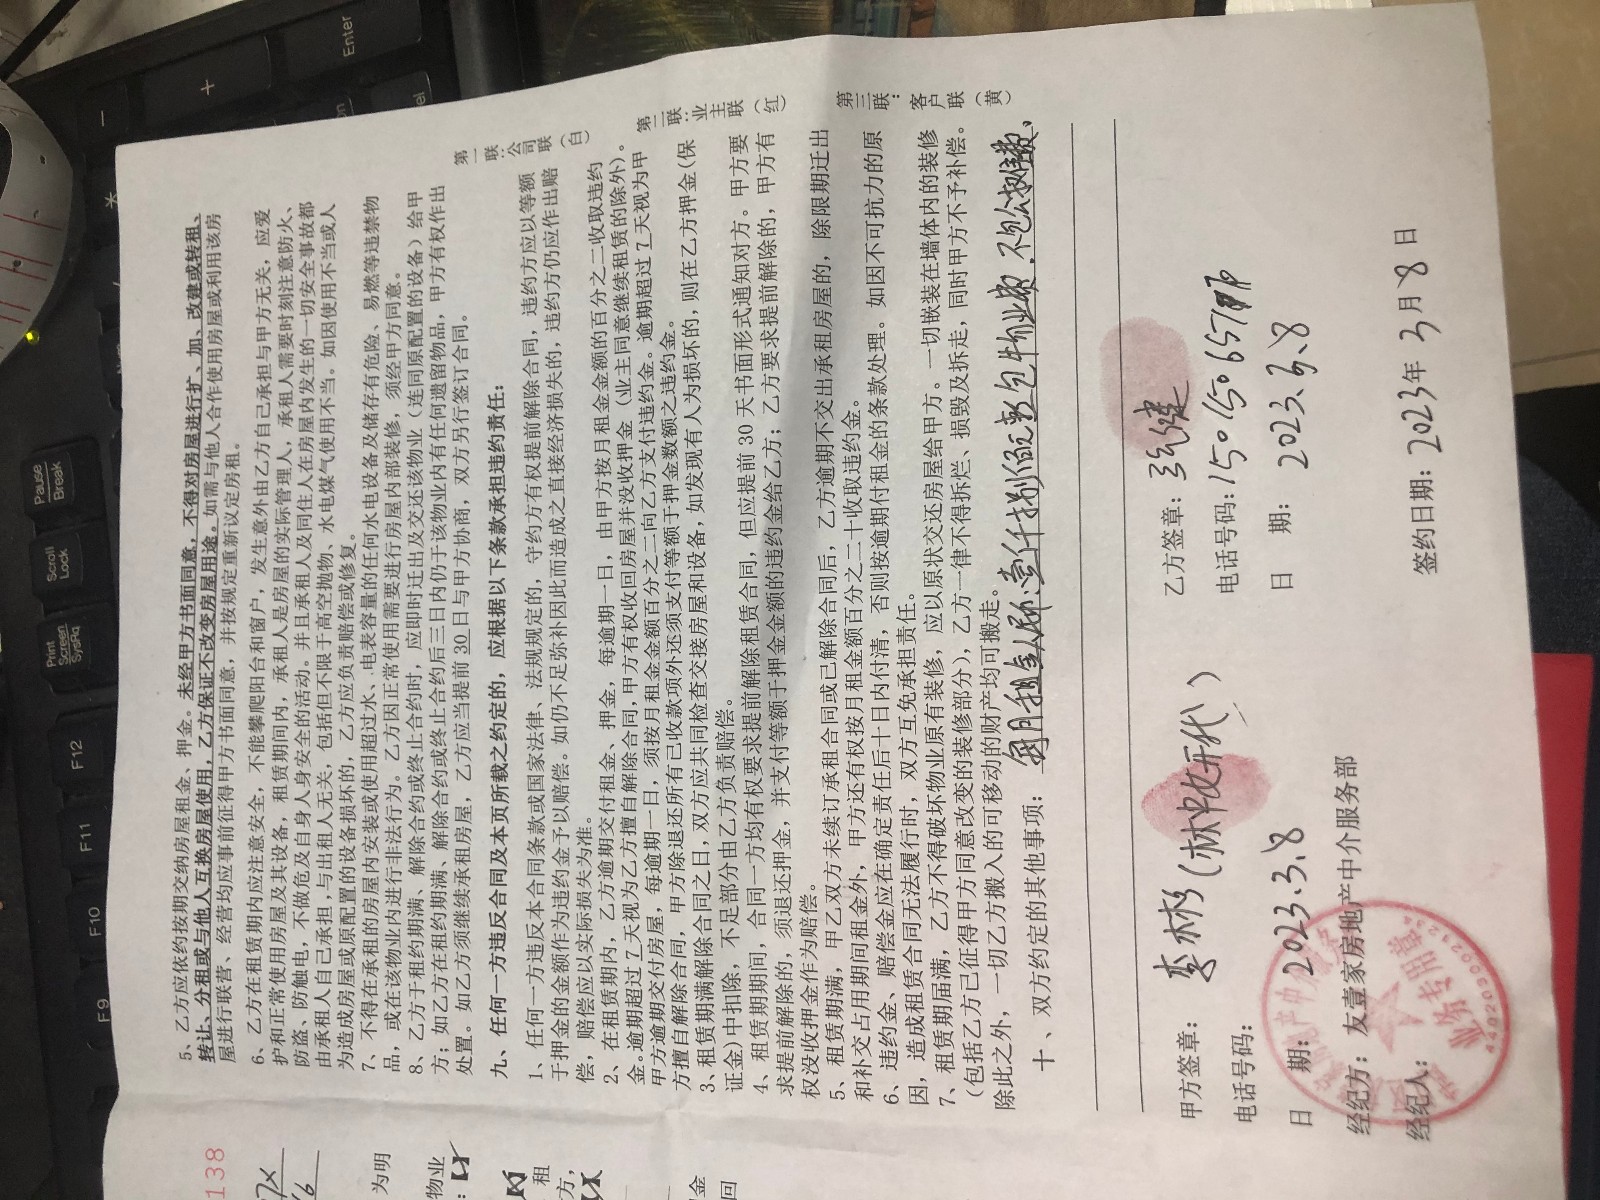 5、乙方应依约按期交纳房屋租金、押金。未经甲方书面同意，不得对房屋进行扩、加、改建或转租、
转让、分租或与他人互换房屋使用，乙方保证不改变房屋用途。如需与他人合作使用房屋或利用该房
屋进行联营、经营均应事前征得甲方书面同意，并按规定重新议定房租。
6、乙方在租赁期内应注意安全，不能攀爬阳台和窗户，发生意外由乙方自己承担与甲方无关，应爱
护和正常使用房屋及其设备，租赁期间内，承租人是房屋的实际管理人，承租人需要时刻注意防火、
防盗、防触电，不做危及自身人身安全的活动。并且承租人及同住人在房屋内发生的一切安全事故都
由承租人自己承担，与出租人无关，包括但不限于高空抛物、水电煤气使用不当。如因使用不当或人
为造成房屋或原配置的设备损坏的，乙方应负责赔偿或修复。
7、不得在承租的房屋内安装或使用超过水、电表容量的任何水电设备及储存有危险、易燃等违禁物
品，或在该物业内进行非法行为。乙方因正常使用需要进行房屋内部装修，须经甲方同意。
8、乙方于租约期满、解除合约或终止合约时，应即时迁出及交还该物业（连同原配置的设备）给甲
方；如乙方在租约期满、解除合约或终止合约后三日内仍于该物业内有任何遗留物品，甲方有权作出
处置。如乙方须继续承租房屋，乙方应当提前30日与甲方协商，双方另行签订合同。
九、任何一方违反合同及本页所载之约定的，应根据以下条款承担违约责任：
1、任何一方违反本合同条款或国家法律、法规规定的，守约方有权提前解除合同，违约方应以等额
于押金的金额作为违约金予以赔偿。如仍不足弥补因此而造成之直接经济损失的，违约方仍应作出赔
偿，赔偿应以实际损失为准。
2、在租赁期内，乙方逾期交付租金、押金，每逾期一日，由甲方按月租金金额的百分之二收取违约
金。逾期超过7天视为乙方擅自解除合同，甲方有权收回房屋并没收押金（业主同意继续租赁的除外）。
甲方逾期交付房屋，每逾期一日，须按月租金金额百分之二向乙方支付违约金。逾期超过7天视为甲
方擅自解除合同，甲方除退还所有已收款项外还须支付等额于押金数额之违约金。
3、租赁期满解除合同之日，双方应共同检查交接房屋和设备，如发现有人为损坏的，则在乙方押金（保
证金）中扣除，不足部分由乙方负责赔偿。
4、租赁期期间，合同一方均有权要求提前解除租赁合同，但应提前30天书面形式通知对方。甲方要
求提前解除的，须退还押金，并支付等额于押金金额的违约金给乙方；乙方要求提前解除的，甲方有
权没收押金作为赔偿。
5、租赁期满，甲乙双方未续订承租合同或已解除合同后，乙方逾期不交出承租房屋的，除限期迁出
和补交占用期间租金外，甲方还有权按月租金额百分之二十收取违约金。
6、违约金、赔偿金应在确定责任后十日内付清，否则按逾期付租金的条款处理。如因不可抗力的原
因，造成租赁合同无法履行时，双方互免承担责任。
7、租赁期届满，乙方不得破坏物业原有装修，应以原状交还房屋给甲方。一切嵌装在墙体内的装修
（包括乙方已征得甲方同意改变的装修部分），乙方一律不得拆烂、损毁及拆走，同时甲方不予补偿。
除此之外，一切乙方搬入的可移动的财产均可搬走。
十、双方约定的其他事项：每月租金人民币:壹仟捌佰元整包物业费.不包公摊费、
甲方签章：李彬（林中女开代）
乙方签章：
电话号码：
电话号码：150150657
日 期：2023.3.8
日 期：2023.3.8
经纪方：友壹家房地产中介服务部
经纪人：
签约日期：2023年3月8日
第一联：公司联（白）
第二联：业主联（红）
第三联：客户联（黄）
业务专用章
138
为明
物业
租
方，
金
回
Print Screen SysRq
Scroll Lock
Pause Break
F9
F10
F11
F12
Enter
+
*